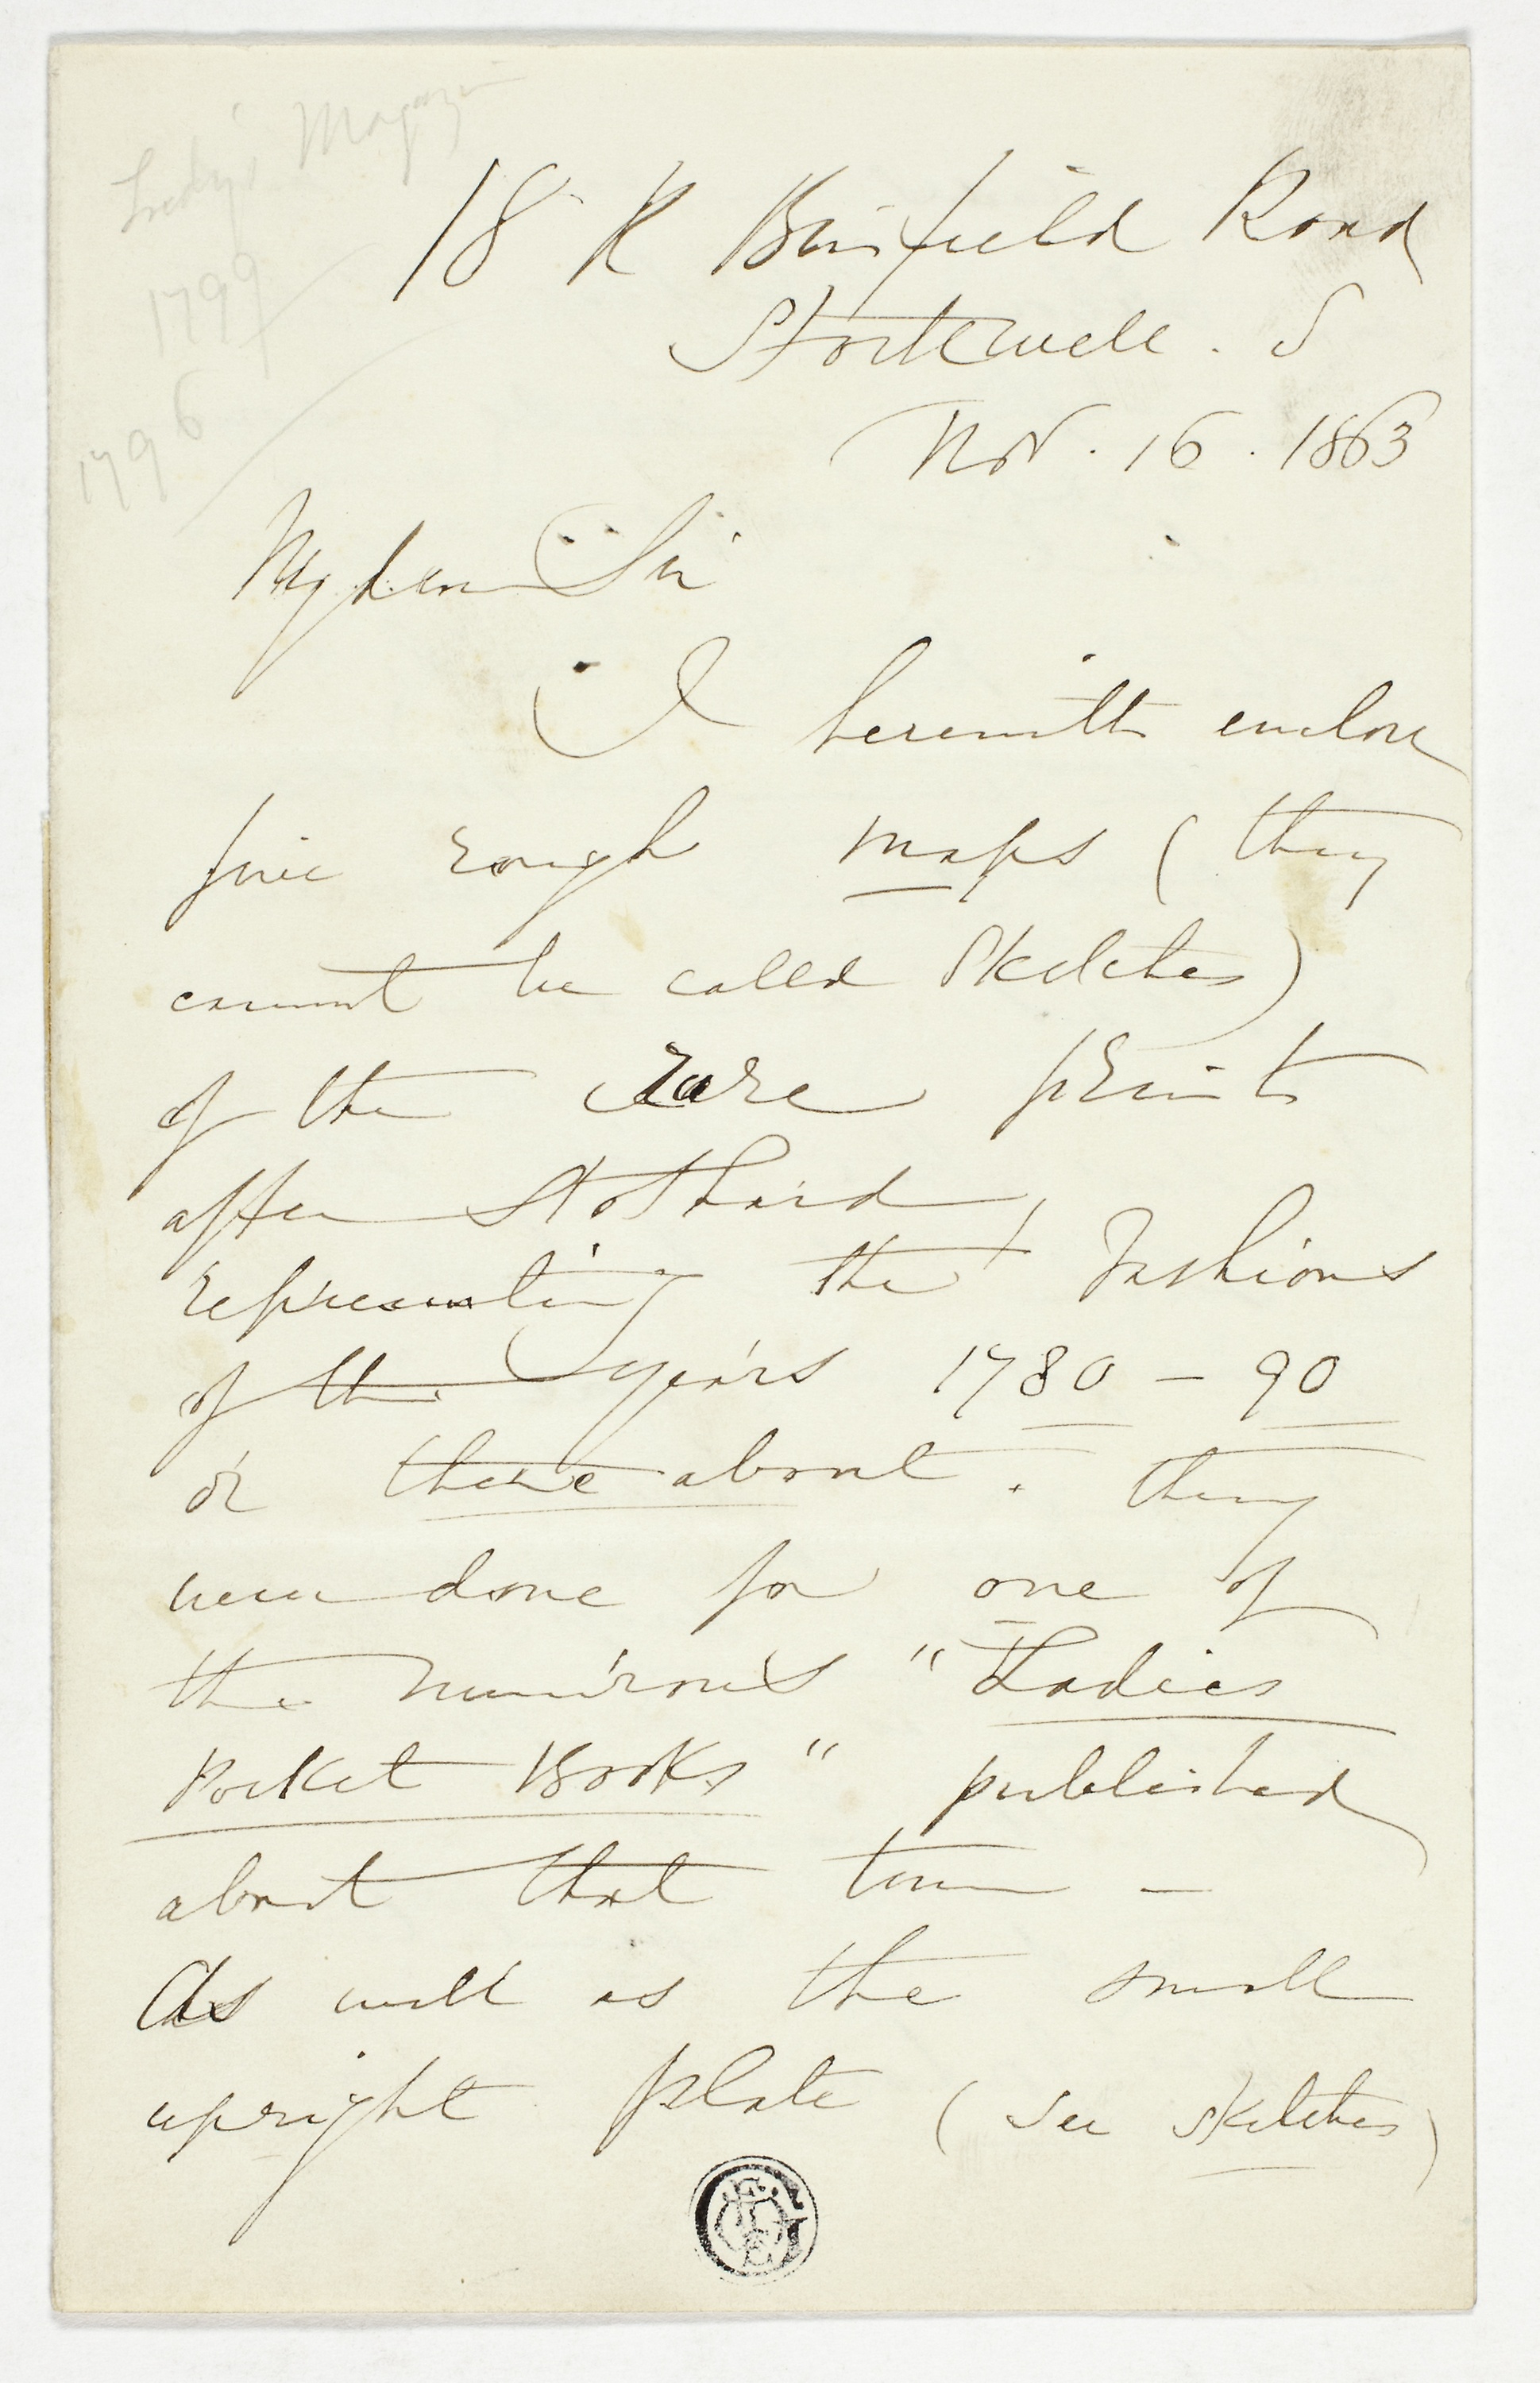 Lady's Magazin
1799
1796
18 K Binfield Road
Stockwell . S
Nov . 16 . 1863
My dear Sir
I herewith enclose
five rough maps ( they
cannot be called sketches )
of the rare prints
after Stothard ,
representing the Fashions
of the years 1780 – 90
or thereabout . they
were done for one of
the numerous " Ladies
Pocket Books " published
about that time –
As well as the small
upright plate ( see sketches )